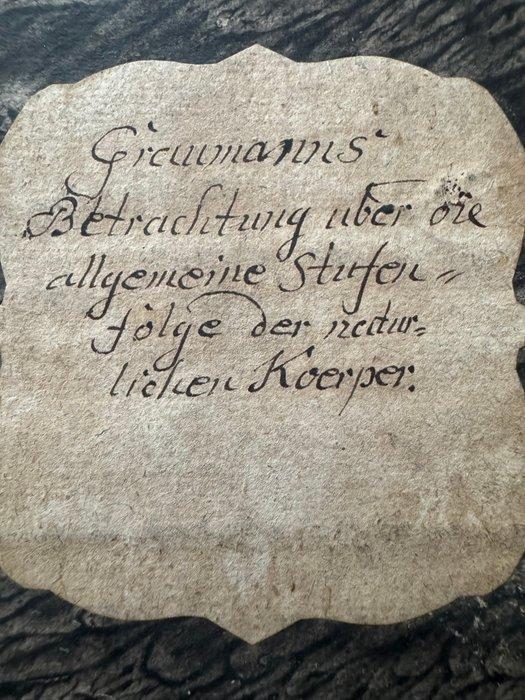 Graumanns
Betrachtung über die
allgemeine Stufen=
folge der natur=
lichen Koerper.